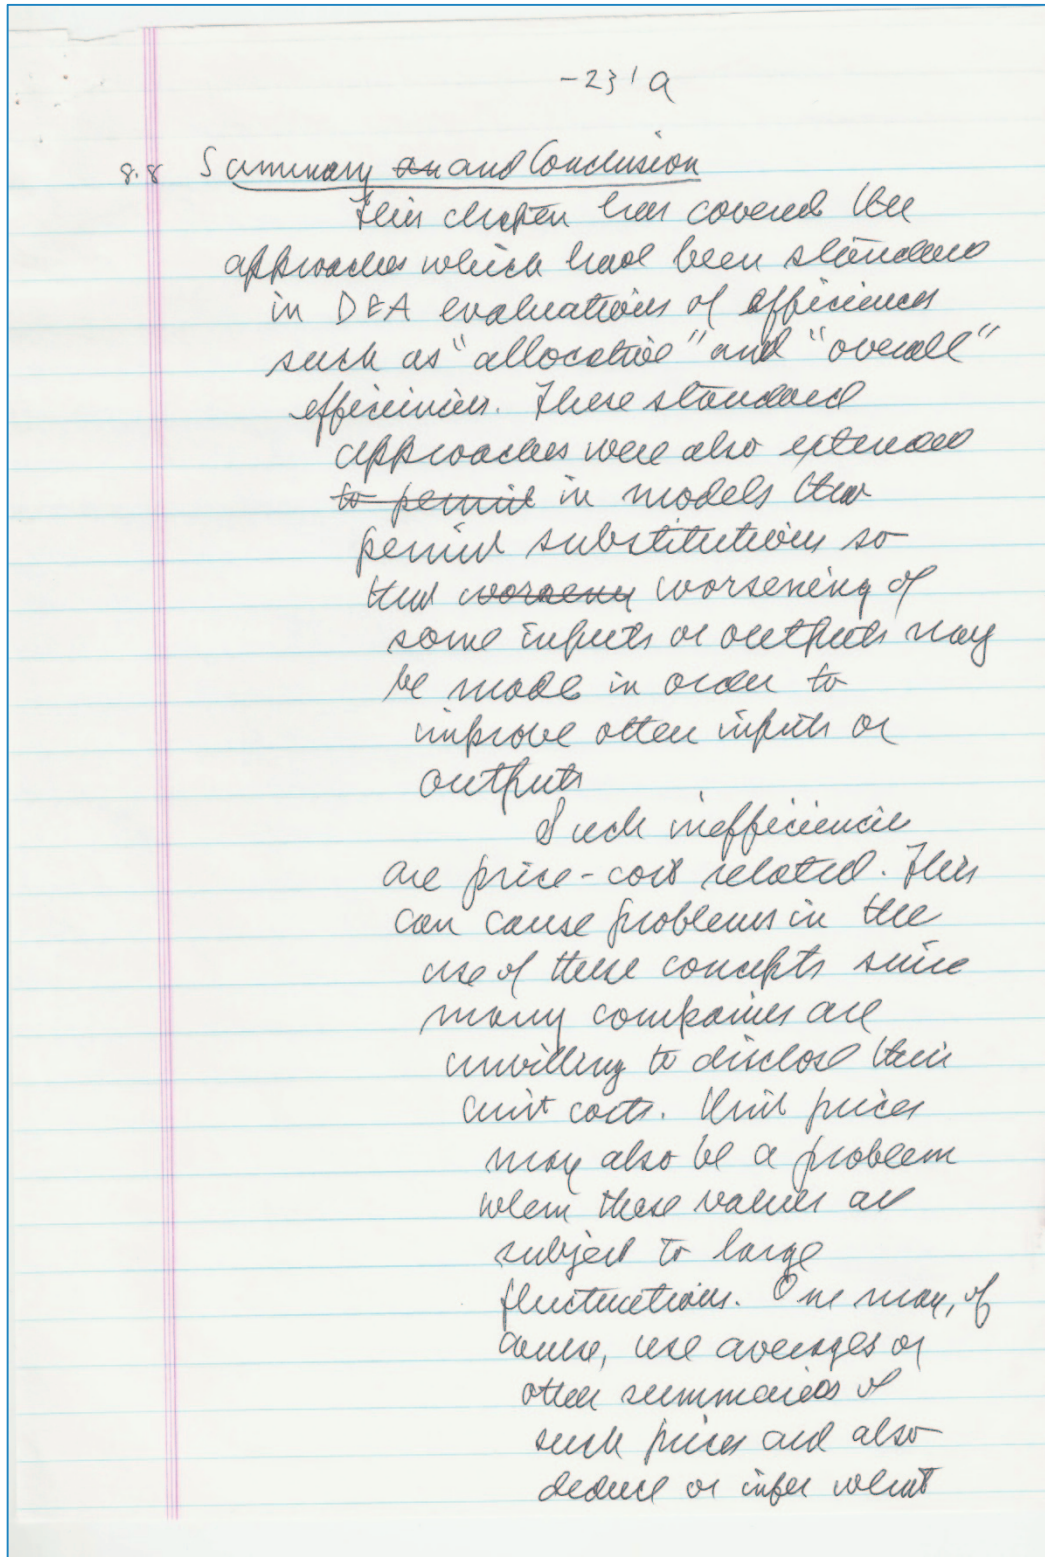 -231a
8.8 Summary an and Conclusion
This chapter has covered the
approaches which have been standard
in DEA evaluations of efficiences
such as "allocative" and "overall"
efficiencies. These standard
approaches were also extended
to permit in models that
permit substitutions so
that worseny worsening of
some inputs or outputs may
be made in order to
improve other inputs or
outputs
Such inefficiencie
are price-cost related. This
can cause problems in the
use of these concepts since
many companies are
unwilling to disclose their
unit costs. Unit prices
may also be a problem
when these values are
subject to large
fluctuations. One may, of
course, use averages or
other summaries of
such prices and also
deduce or infer what